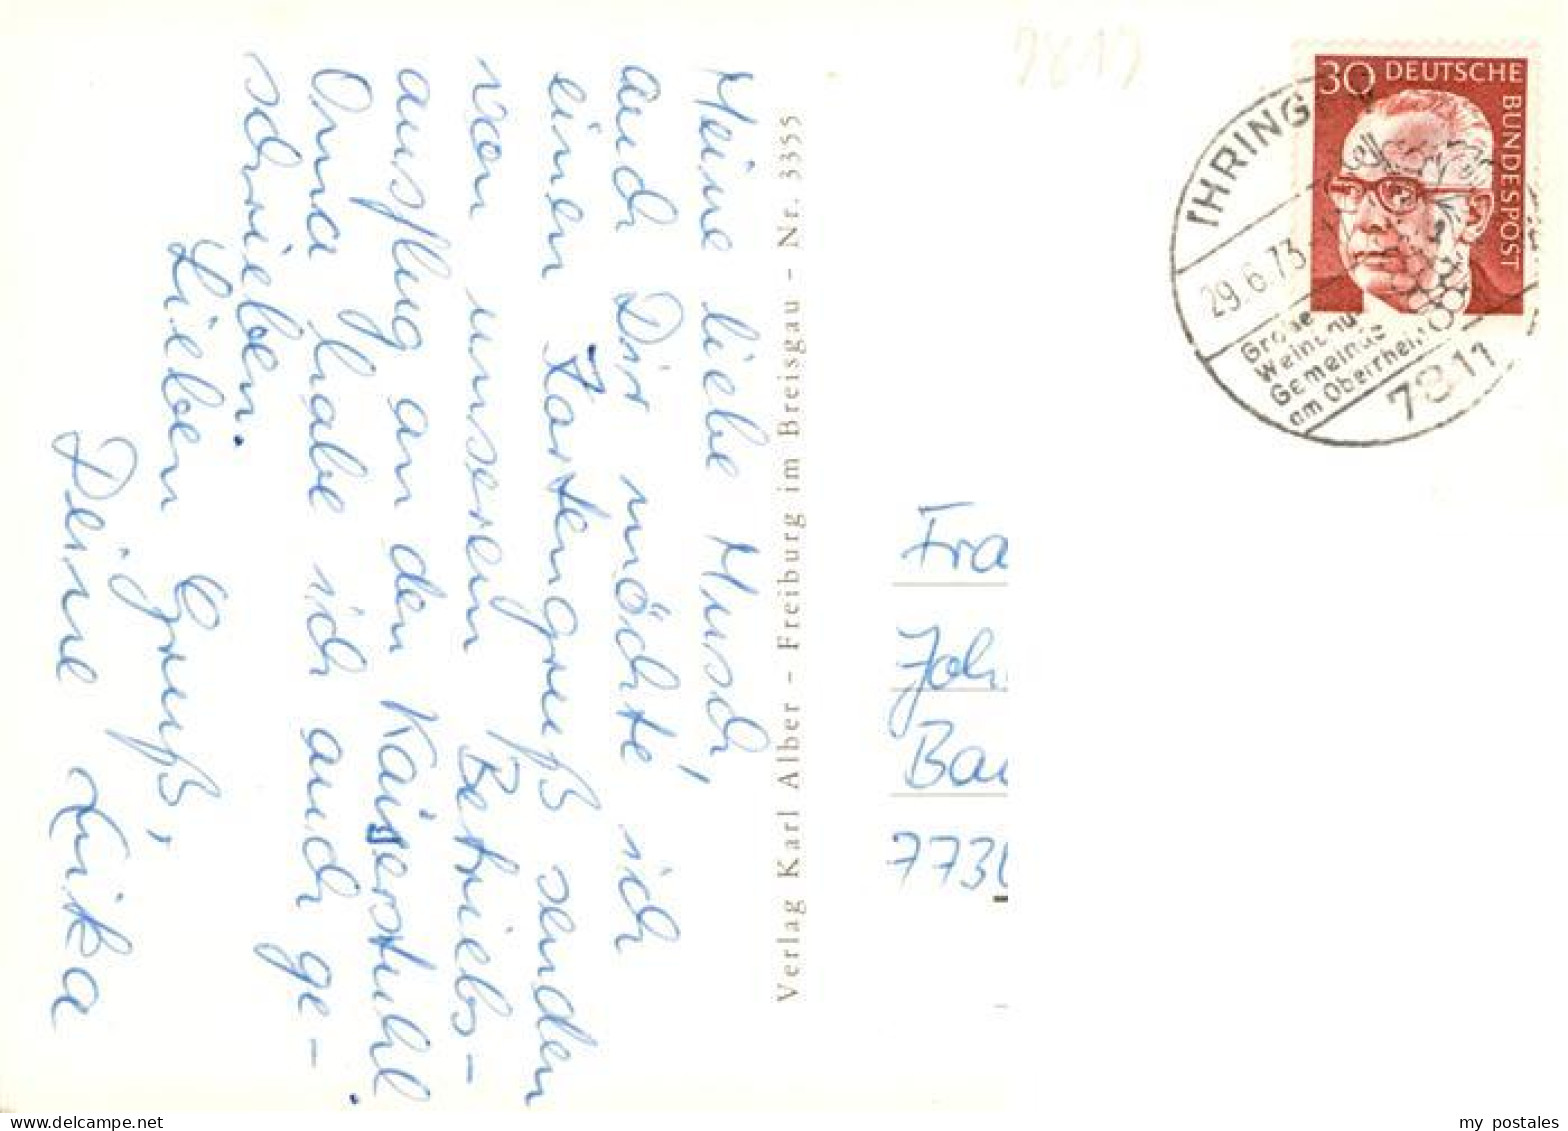 Meine liebe Musch,
auch Dir möchte ich
einen Kartengruß senden
von unserem Betriebs-
ausflug an den Kaiserstuhl.
Oma habe ich auch ge-
schrieben.
Lieben Gruß,
Deine
Verlag Karl Alber – Freiburg im Breisgau – Nr. 3355
30 DEUTSCHE
BUNDESPOST
29.6.73
Große
Weinbau
Gemeinde
am Oberrhein
7811
Fra
Joh
Ba
773
my postales